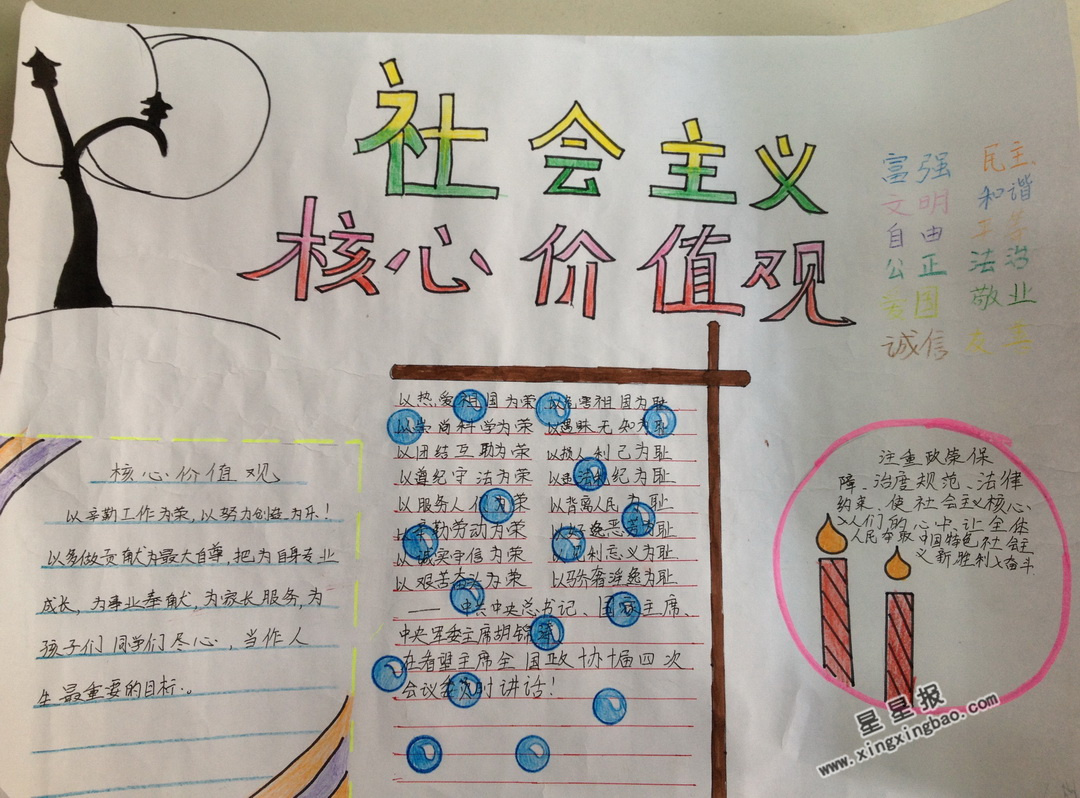 社会主义
核心价值观
富强 民主
文明 和谐
自由 平等
公正 法治
爱国 敬业
诚信 友善
核心价值观
以辛勤工作为荣,以努力创造为乐!
以多做贡献为最大自尊,把为自身专业
成长,为事业奉献,为家长服务,为
孩子们同学们尽心,当作人
生最重要的目标。
以热爱祖国为荣 以危害祖国为耻
以崇尚科学为荣 以愚昧无知为耻
以团结互助为荣 以损人利己为耻
以遵纪守法为荣 以违法乱纪为耻
以服务人们为荣 以背离人民为耻
以辛勤劳动为荣 以好逸恶劳为耻
以诚实守信为荣 以见利忘义为耻
以艰苦奋斗为荣 以骄奢淫逸为耻
——中共中央总书记、国家主席、
中央军委主席胡锦涛
在看望主席全国政协十届四次
会议委员时讲话!
注重政策保
障、治度规范、法律
约束,使社会主义核心
入人们的心中,让全体
人民夺取中国特色社会主
义新胜利又奋斗.
星星报
www.xingxingbao.com